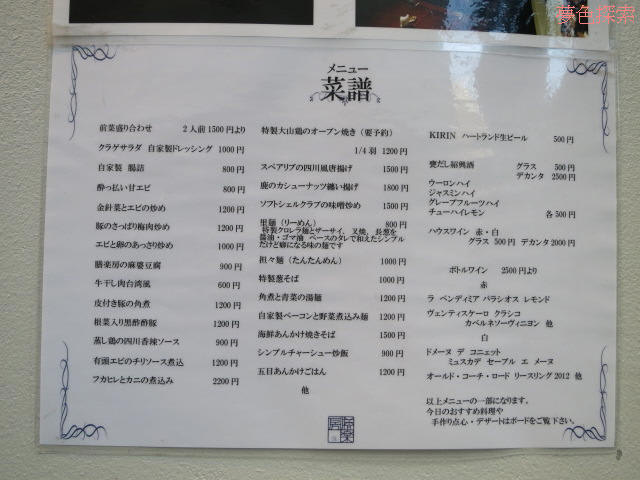 夢色探索
メニュー
菜譜
前菜盛り合わせ 2人前1500円より
クラゲサラダ 自家製ドレッシング 1000円
自家製 腸詰 800円
酔っ払い甘エビ 800円
金針菜とエビの炒め 1200円
豚のさっぱり梅肉炒め 1200円
エビと卵のあっさり炒め 1000円
膳楽房の麻婆豆腐 900円
牛干し肉台湾風 600円
皮付き豚の角煮 1200円
根菜入り黒酢酢豚 1200円
蒸し鶏の四川香辣ソース 900円
有頭エビのチリソース煮込 1200円
フカヒレとカニの煮込み 2200円
特製大山鶏のオーブン焼き(要予約)
1/4羽 1200円
スペアリブの四川風唐揚げ 1500円
鹿のカシューナッツ纏い揚げ 1800円
ソフトシェルクラブの味噌炒め 1500円
里麺(りーめん) 800円
特製クロレラ麺とザーサイ、叉焼、長葱を
醤油・ゴマ油 ベースのタレで和えたシンプル
だけど癖になる味の麺です
担々麺(たんたんめん) 1000円
特製葱そば 1000円
角煮と青菜の湯麺 1200円
自家製ベーコンと野菜煮込み麺 1200円
海鮮あんかけ焼きそば 1500円
シンプルチャーシュー炒飯 900円
五目あんかけごはん 1200円
他
KIRIN ハートランド生ビール 500円
甕だし紹興酒 グラス 500円
デカンタ 2500円
ウーロンハイ
ジャスミンハイ
グレープフルーツハイ
チューハイレモン 各500円
ハウスワイン 赤・白
グラス 500円 デカンタ2000円
ボトルワイン 2500円より
赤
ラ ベンディミア パラシオス レモンド
ヴェンティスケーロ クラシコ
カベルネソーヴィニヨン 他
白
ドメーヌ デ コニェット
ミュスカデ セーブル エ メーヌ
オールド・コーチ・ロード リースリング2012 他
以上メニューの一部になります。
今日のおすすめ料理や
手作り点心・デザートはボードをご覧下さい。